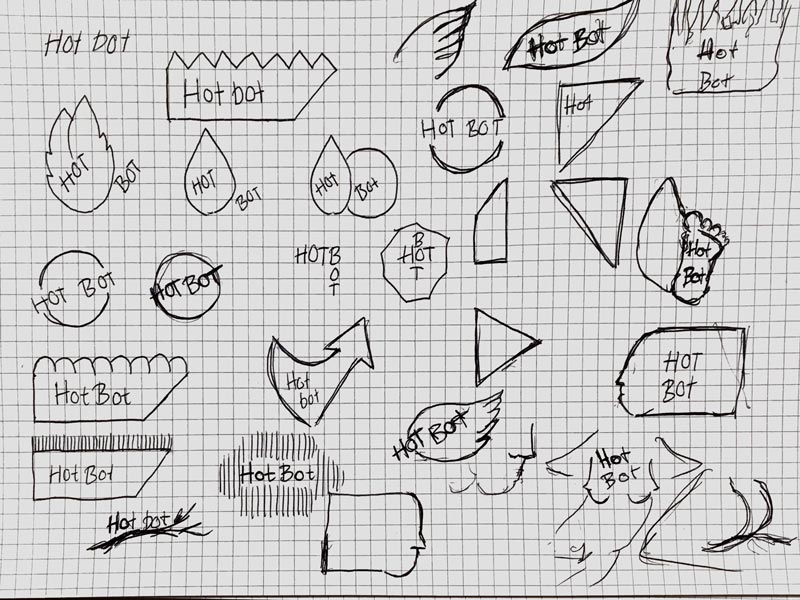 Hot bot
Hot bot
Hot Bot
Hot
Bot
HOT BOT
Hot
HOT
BOT
HOT
BOT
Hot
Bot
HOT BOT
HOT BOT
HOTB
O
T
B
HOT
T
Hot
Bot
Hot Bot
Hot
bot
HOT
BOT
Hot Bot
Hot Bot
HOT Bot
Hot
Bot
Hot bot